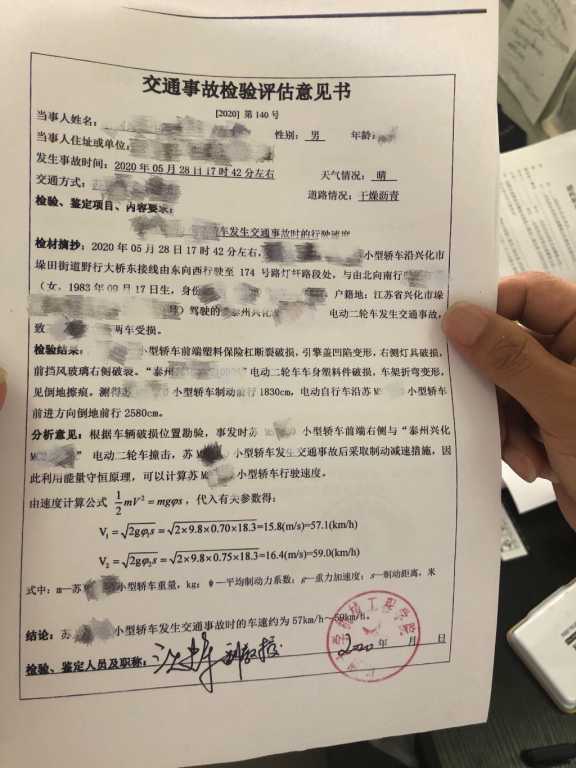 交通事故检验评估意见书
[2020] 第 140 号
当事人姓名： 性别： 男 年龄：
当事人住址或单位：
发生事故时间：2020 年 05 月 28 日 17 时 42 分左右 天气情况： 晴
交通方式： 道路情况：干燥沥青
检验、鉴定项目、内容要求：
车发生交通事故时的行驶速度
检材摘抄：2020 年 05 月 28 日 17 时 42 分左右， 小型轿车沿兴化市
垛田街道野行大桥东接线由东向西行驶至 174 号路灯杆路段处，与由北向南行
（女，1983 年 09 月 17 日生，身份 ，户籍地：江苏省兴化市垛
号）驾驶的“泰州兴化 电动二轮车发生交通事故，
致 两车受损。
检验结果： 小型轿车前端塑料保险杠断裂破损，引擎盖凹陷变形，右侧灯具破损，
前挡风玻璃右侧破裂。“泰州 ”电动二轮车车身塑料件破损，车架折弯变形，
见倒地擦痕。测得苏 小型轿车制动前行 1830cm，电动自行车沿苏 M 小型轿车
前进方向倒地前行 2580cm。
分析意见：根据车辆破损位置勘验，事发时苏 小型轿车前端右侧与“泰州兴化
” 电动二轮车撞击，苏 M 小型轿车发生交通事故后采取制动减速措施，因
此利用能量守恒原理，可以计算苏 小型轿车行驶速度。
由速度计算公式 1/2 mV² = mgφs，代入有关参数得：
V₁ = √2gφ₁s = √2×9.8×0.70×18.3=15.8(m/s)=57.1(km/h)
V₂ = √2gφ₂s = √2×9.8×0.75×18.3=16.4(m/s)=59.0(km/h)
式中：m—苏 小型轿车重量，kg；φ—平均制动力系数；g—重力加速度；s—制动距离，米
结论：苏 小型轿车发生交通事故时的车速约为 57km/h～59km/h。
检验、鉴定人员及职称： 副教授 年 月 日